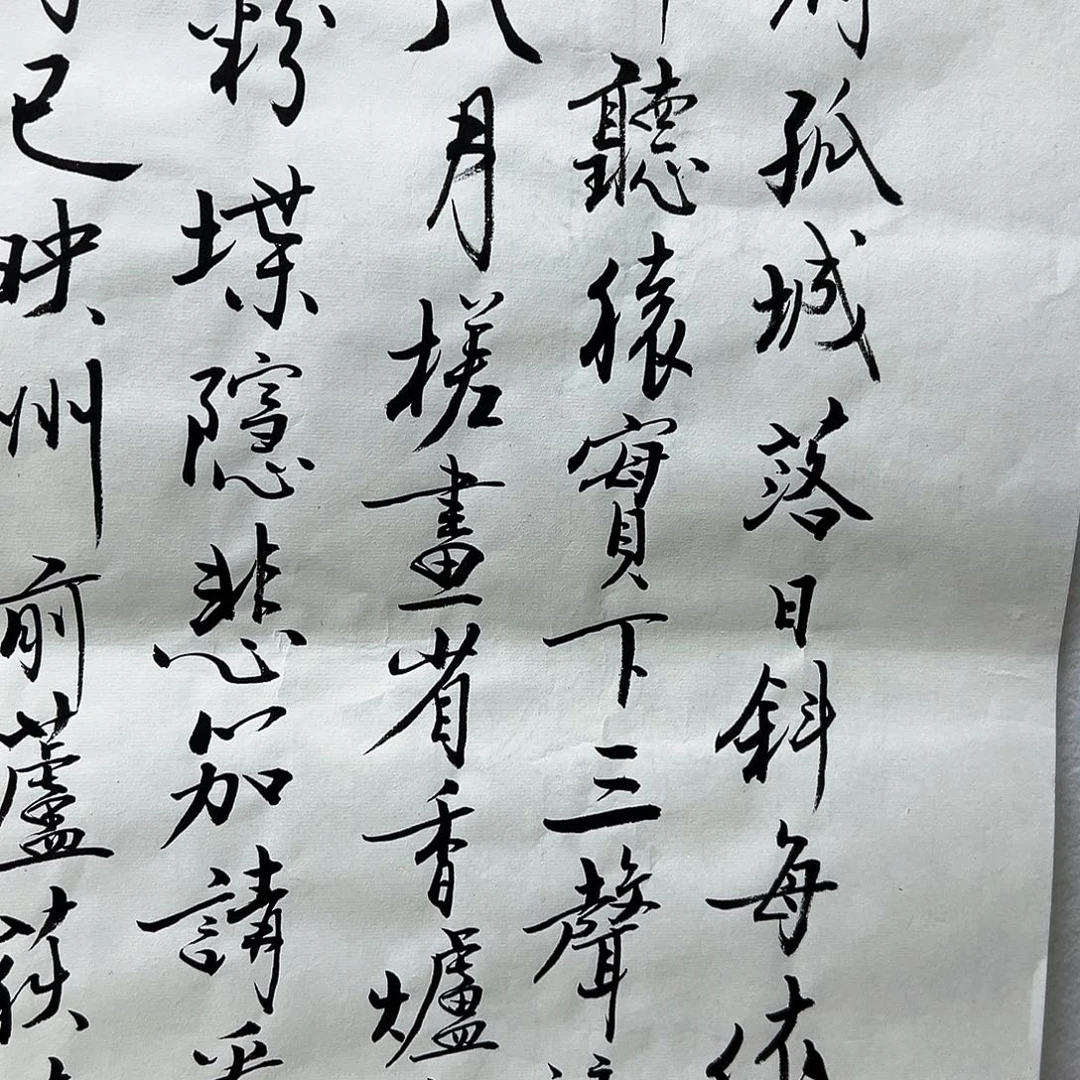 府孤城落日斜每依
聽猿實下三聲淚
八月槎畫省香爐
粉堞隱悲笳請看
已映州前蘆荻